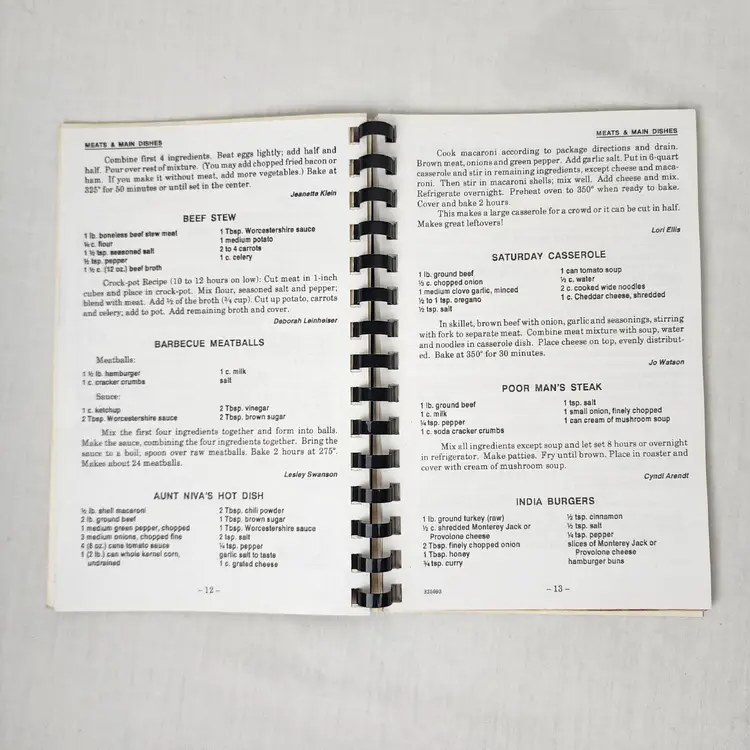 MEATS & MAIN DISHES
Combine first 4 ingredients. Beat eggs lightly; add half and
half. Pour over rest of mixture. (You may add chopped fried bacon or
ham. If you make it without meat, add more vegetables.) Bake at
325° for 50 minutes or until set in the center.
Jeanette Klein
BEEF STEW
1 lb. boneless beef stew meat
¼ c. flour
1 ½ tsp. seasoned salt
½ tsp. pepper
1 ½ c. (12 oz.) beef broth
1 Tbsp. Worcestershire sauce
1 medium potato
2 to 4 carrots
1 c. celery
Crock-pot Recipe (10 to 12 hours on low): Cut meat in 1-inch
cubes and place in crock-pot. Mix flour, seasoned salt and pepper;
blend with meat. Add ½ of the broth (¾ cup). Cut up potato, carrots
and celery; add to pot. Add remaining broth and cover.
Deborah Leinheiser
BARBECUE MEATBALLS
Meatballs:
1 ½ lb. hamburger
1 c. cracker crumbs
1 c. milk
salt
Sauce:
1 c. ketchup
2 Tbsp. Worcestershire sauce
2 Tbsp. vinegar
2 Tbsp. brown sugar
Mix the first four ingredients together and form into balls.
Make the sauce, combining the four ingredients together. Bring the
sauce to a boil; spoon over raw meatballs. Bake 2 hours at 275°.
Makes about 24 meatballs.
Lesley Swanson
AUNT NIVA'S HOT DISH
½ lb. shell macaroni
2 lb. ground beef
1 medium green pepper, chopped
3 medium onions, chopped fine
4 (8 oz.) cans tomato sauce
1 (2 lb.) can whole kernel corn,
undrained
2 Tbsp. chili powder
1 Tbsp. brown sugar
1 Tbsp. Worcestershire sauce
2 tsp. salt
¼ tsp. pepper
garlic salt to taste
1 c. grated cheese
- 12 -
MEATS & MAIN DISHES
Cook macaroni according to package directions and drain.
Brown meat, onions and green pepper. Add garlic salt. Put in 6-quart
casserole and stir in remaining ingredients, except cheese and maca-
roni. Then stir in macaroni shells; mix well. Add cheese and mix.
Refrigerate overnight. Preheat oven to 350° when ready to bake.
Cover and bake 2 hours.
This makes a large casserole for a crowd or it can be cut in half.
Makes great leftovers!
Lori Ellis
SATURDAY CASSEROLE
1 lb. ground beef
½ c. chopped onion
1 medium clove garlic, minced
½ to 1 tsp. oregano
½ tsp. salt
1 can tomato soup
⅓ c. water
2 c. cooked wide noodles
1 c. Cheddar cheese, shredded
In skillet, brown beef with onion, garlic and seasonings, stirring
with fork to separate meat. Combine meat mixture with soup, water
and noodles in casserole dish. Place cheese on top, evenly distribut-
ed. Bake at 350° for 30 minutes.
Jo Watson
POOR MAN'S STEAK
1 lb. ground beef
1 c. milk
¼ tsp. pepper
1 c. soda cracker crumbs
1 tsp. salt
1 small onion, finely chopped
1 can cream of mushroom soup
Mix all ingredients except soup and let set 8 hours or overnight
in refrigerator. Make patties. Fry until brown. Place in roaster and
cover with cream of mushroom soup.
Cyndi Arendt
INDIA BURGERS
1 lb. ground turkey (raw)
½ c. shredded Monterey Jack or
Provolone cheese
2 Tbsp. finely chopped onion
1 Tbsp. honey
¾ tsp. curry
½ tsp. cinnamon
½ tsp. salt
¼ tsp. pepper
slices of Monterey Jack or
Provolone cheese
hamburger buns
- 13 -